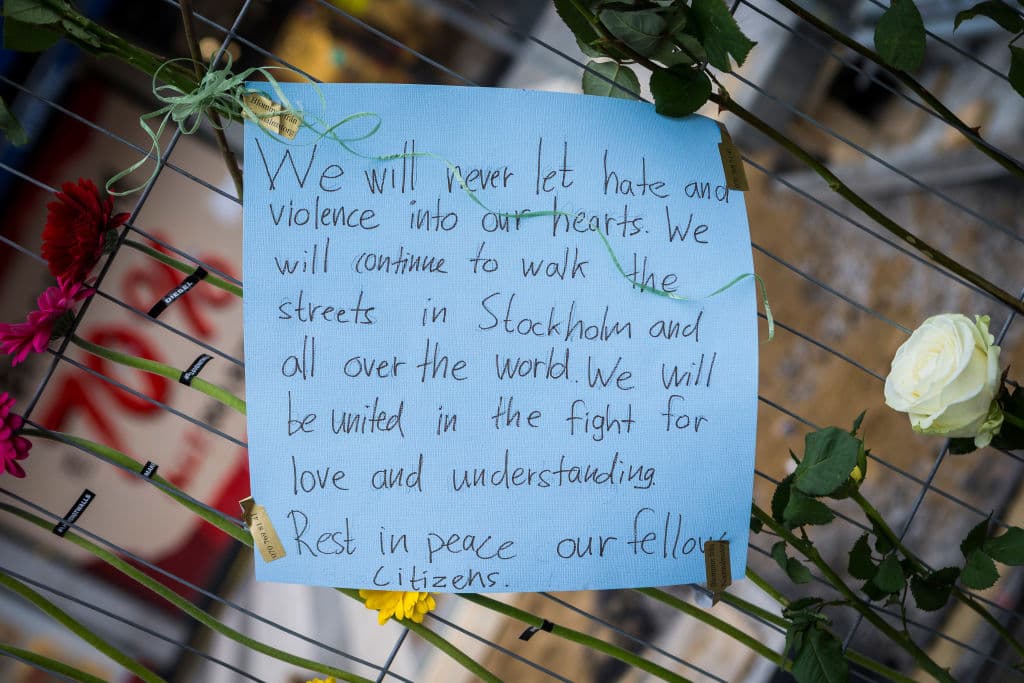 We will never let hate and
violence into our hearts. We
will continue to walk the
streets in Stockholm and
all over the world. We will
be united in the fight for
love and understanding.
Rest in peace our fellow
citizens.
70%
DIESEL